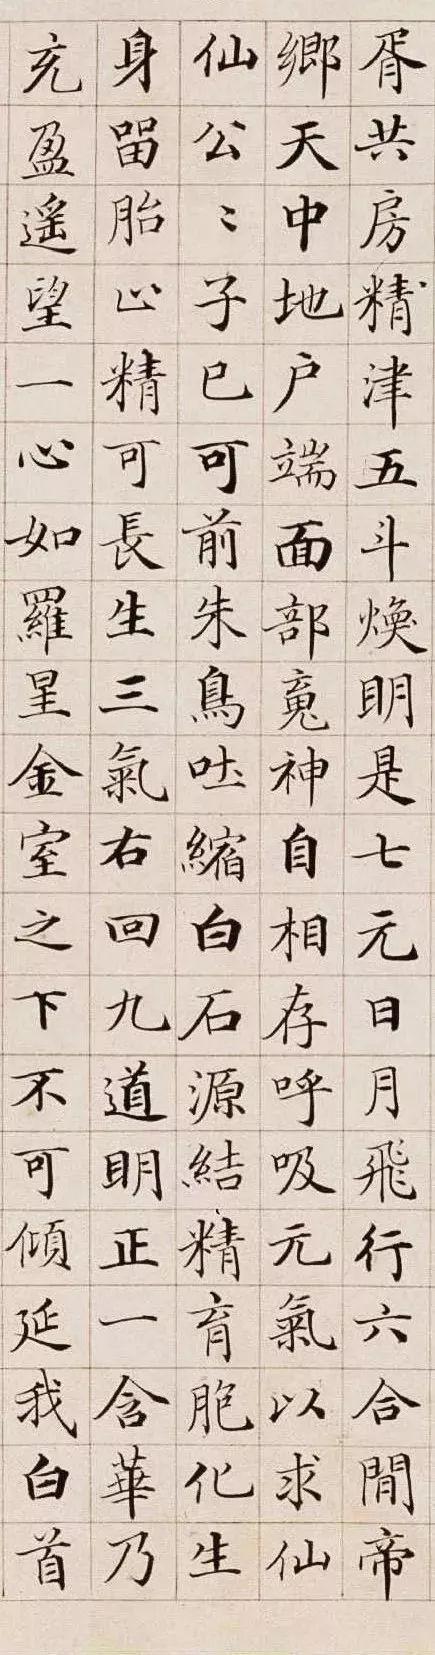 胥共房精津五斗煥明是七元日月飛行六合間帝
鄉天中地户端面部䰟神自相存呼吸元氣以求仙
仙公〻子已可前朱鳥吐縮白石源結精育胞化生
身留胎止精可長生三氣右回九道明正一含華乃
充盈遥望一心如羅星金室之下不可傾延我白首